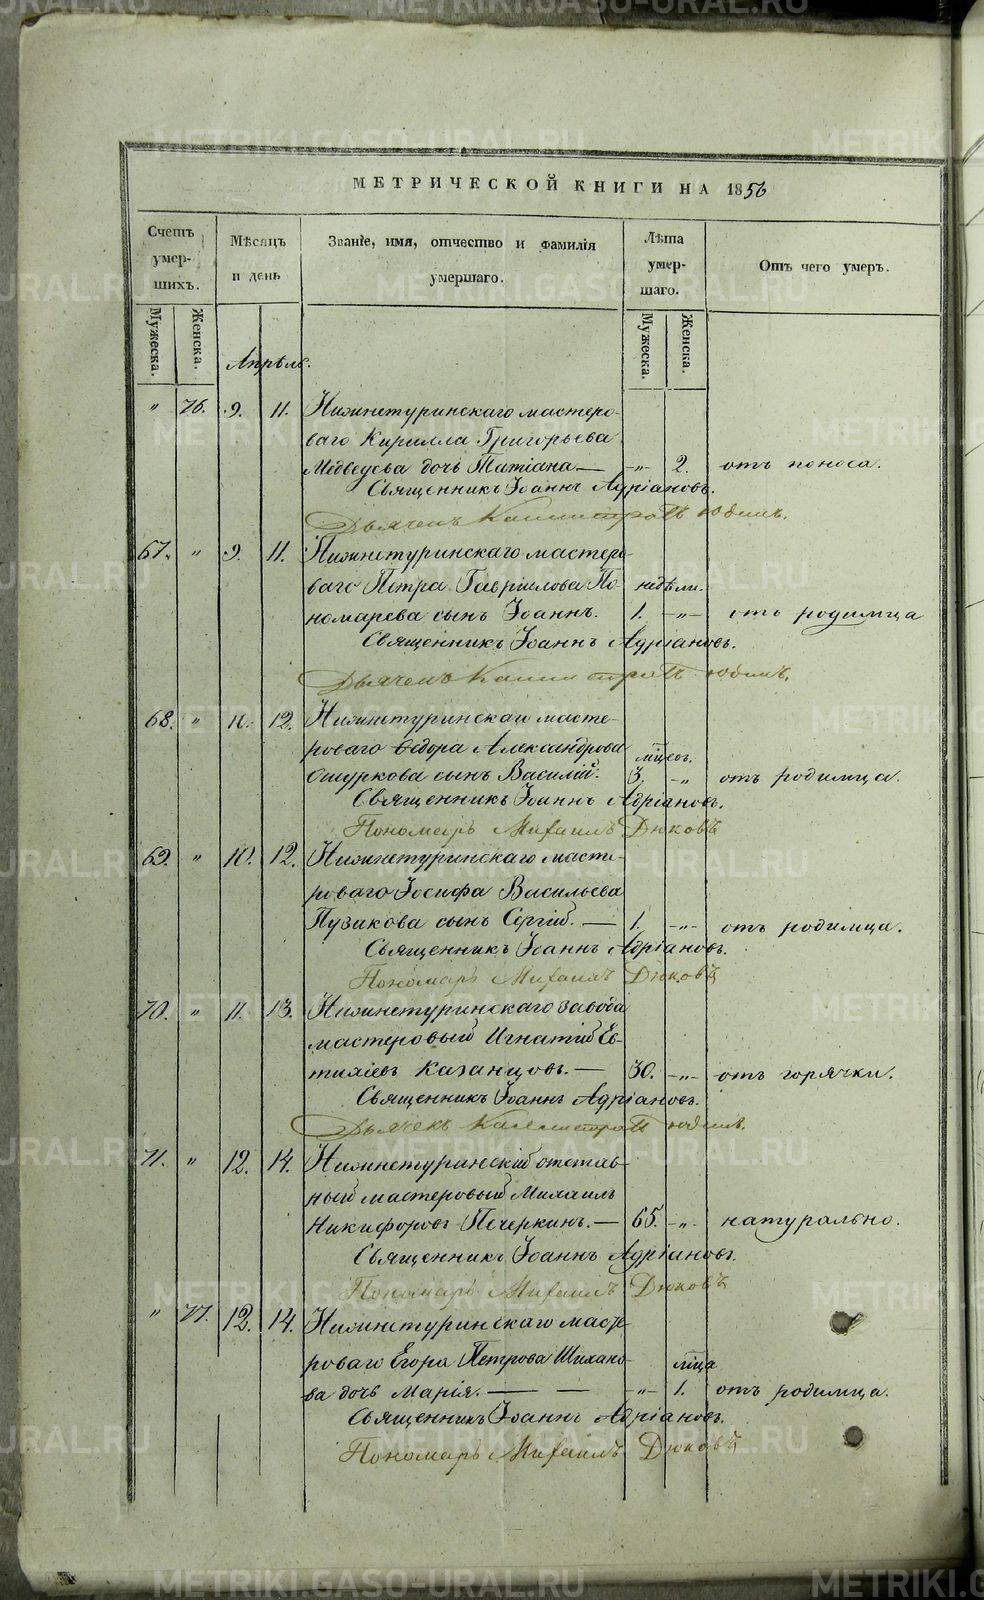 METRIKI.GASO-URAL.RU
МЕТРИЧЕСКОЙ КНИГИ НА 1856
Счетъ умер- шихъ.
Мѣсяцъ и день
Званіе, имя, отчество и фамилія умершаго.
Лѣта умер- шаго.
Отъ чего умеръ.
Мужеска. Женска. Мужеска. Женска.
Апрѣль.
" 76. 9. 11. Нижнетуринскаго мастеро-
ваго Кирилла Григорьева
Медведева дочь Татіана — -"- 2. отъ поноса.
Священникъ Іоаннъ Адріановъ.
Дьячекъ Каллистратъ Юдинъ.
67. " 9. 11. Нижнетуринскаго мастеро-
ваго Петра Гавріилова По- недѣли.
номарева сынъ Іоаннъ. 1. -"- отъ родимца
Священникъ Іоаннъ Адріановъ.
Дьячекъ Каллистратъ Юдинъ.
68. " 10. 12. Нижнетуринскаго масте-
роваго Ѳедора Александрова мѣсец.
Ошуркова сынъ Василій. 3. -"- отъ родимца.
Священникъ Іоаннъ Адріановъ.
Пономарь Михаилъ Дюковъ
69. " 10. 12. Нижнетуринскаго масте-
роваго Іосифа Васильева
Пузикова сынъ Сергій. — 1. -"- отъ родимца.
Священникъ Іоаннъ Адріановъ.
Пономарь Михаилъ Дюковъ
70. " 11. 13. Нижнетуринскаго завода
мастеровый Игнатій Ев-
тихіевъ Казанцовъ. — 30. -"- отъ горячки.
Священникъ Іоаннъ Адріановъ.
Дьячекъ Каллистратъ Юдинъ.
71. " 12. 14. Нижнетуринскій отстав-
ный мастеровый Михаилъ
Никифоровъ Печеркинъ. — 65. -"- натурально.
Священникъ Іоаннъ Адріановъ.
Пономарь Михаилъ Дюковъ
" 77. 12. 14. Нижнетуринскаго масте-
роваго Егора Петрова Шихано- мѣца
ва дочь Марія. — — -"- 1. отъ родимца.
Священникъ Іоаннъ Адріановъ.
Пономарь Михаилъ Дюковъ